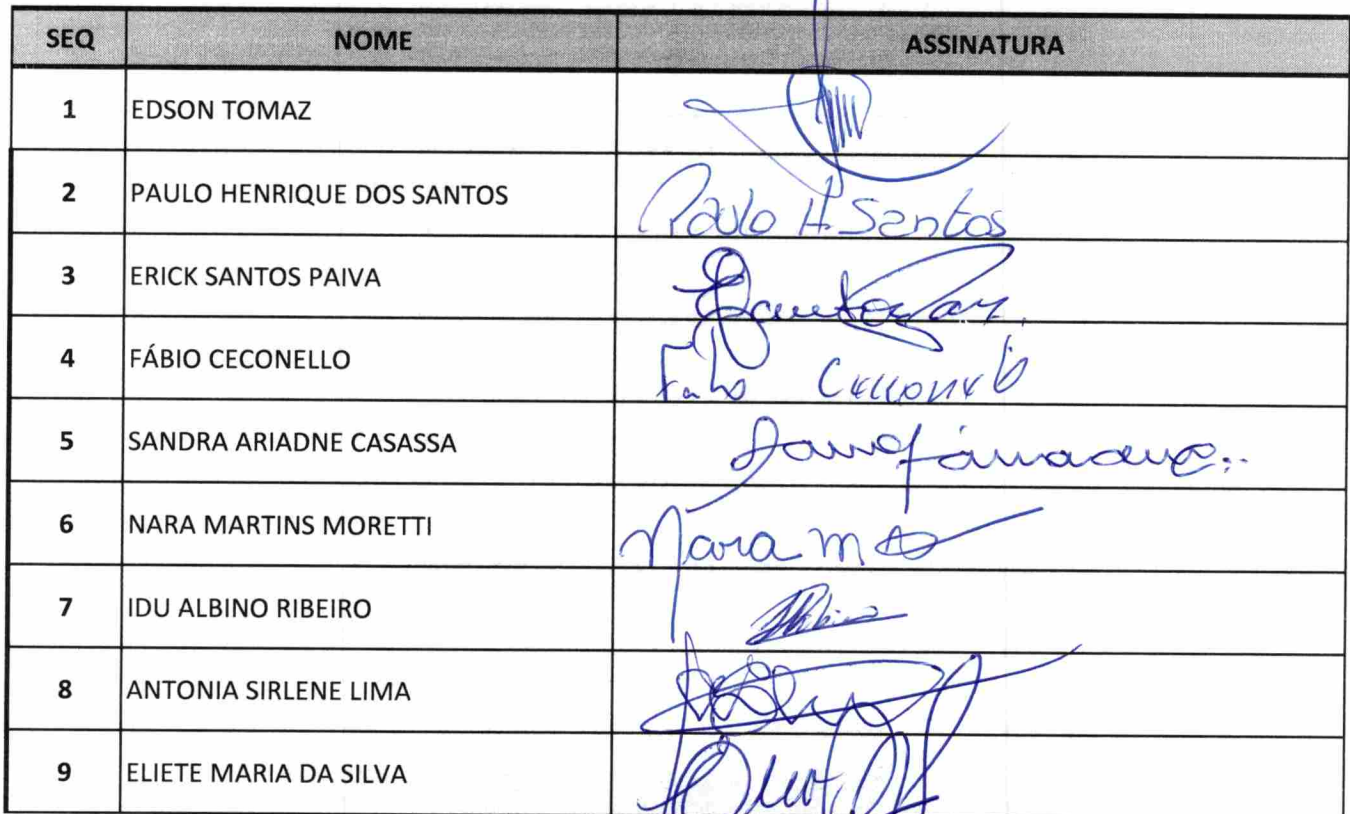 SEQ NOME ASSINATURA
1 EDSON TOMAZ
2 PAULO HENRIQUE DOS SANTOS Paulo H. Santos
3 ERICK SANTOS PAIVA
4 FÁBIO CECONELLO
5 SANDRA ARIADNE CASASSA
6 NARA MARTINS MORETTI Nara M
7 IDU ALBINO RIBEIRO
8 ANTONIA SIRLENE LIMA
9 ELIETE MARIA DA SILVA